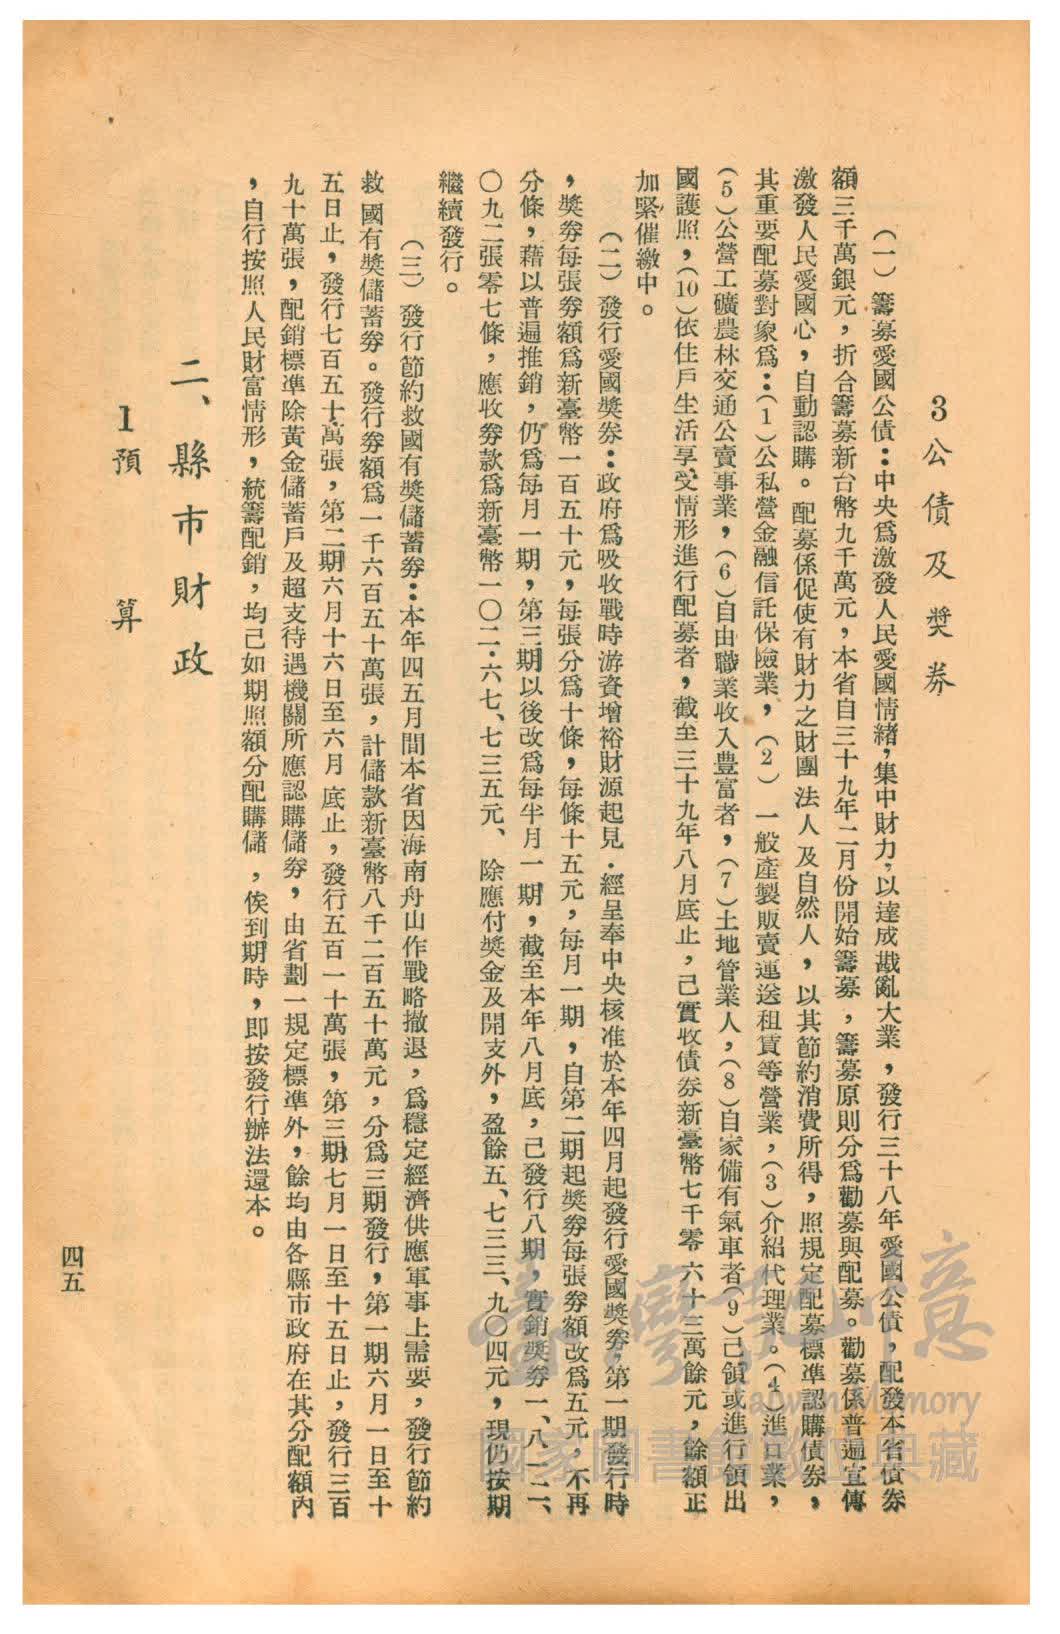 3公債及獎券
(一)籌募愛國公債：中央為激發人民愛國情緒，集中財力，以達成戡亂大業，發行三十八年愛國公債，配發本省債券
額三千萬銀元，折合籌募新台幣九千萬元，本省自三十九年二月份開始籌募，籌募原則分為勸募與配募。勸募係普遍宣傳
激發人民愛國心，自動認購。配募係促使有財力之財團法人及自然人，以其節約消費所得，照規定配募標準認購債券，
其重要配募對象為：(1)公私營金融信託保險業，(2)一般產製販賣運送租賃等營業，(3)介紹代理業。(4)進口業，
(5)公營工礦農林交通公賣事業，(6)自由職業收入豐富者，(7)土地管業人，(8)自家備有氣車者(9)己領或進行領出
國護照，(10)依住戶生活享受情形進行配募者，截至三十九年八月底止，己實收債券新臺幣七千零六十三萬餘元，餘額正
加緊催繳中。
(二)發行愛國獎券：政府為吸收戰時游資增裕財源起見．經呈奉中央核准於本年四月起發行愛國獎券，第一期發行時
，獎券每張券額為新臺幣一百五十元，每張分為十條，每條十五元，每月一期，自第二期起獎券每張券額改為五元，不再
分條，藉以普遍推銷，仍為每月一期，第三期以後改為每半月一期，截至本年八月底，己發行八期，實銷獎券一、八一二、
〇九二張零七條，應收券款為新臺幣一〇二．六七、七三五元、除應付獎金及開支外，盈餘五、七三三、九〇四元，現仍按期
繼續發行。
(三)發行節約救國有獎儲蓄券：本年四五月間本省因海南舟山作戰略撤退，為穩定經濟供應軍事上需要，發行節約
救國有獎儲蓄券。發行券額為一千六百五十萬張，計儲款新臺幣八千二百五十萬元，分為三期發行，第一期六月一日至十
五日止，發行七百五十萬張，第二期六月十六日至六月底止，發行五百一十萬張，第三期七月一日至十五日止，發行三百
九十萬張，配銷標準除黃金儲蓄戶及超支待遇機關所應認購儲券，由省劃一規定標準外，餘均由各縣市政府在其分配額內
，自行按照人民財富情形，統籌配銷，均己如期照額分配購儲，俟到期時，即按發行辦法還本。
二、縣市財政
1預算
四五
臺灣記憶
Taiwan Memory
國家圖書館數位典藏